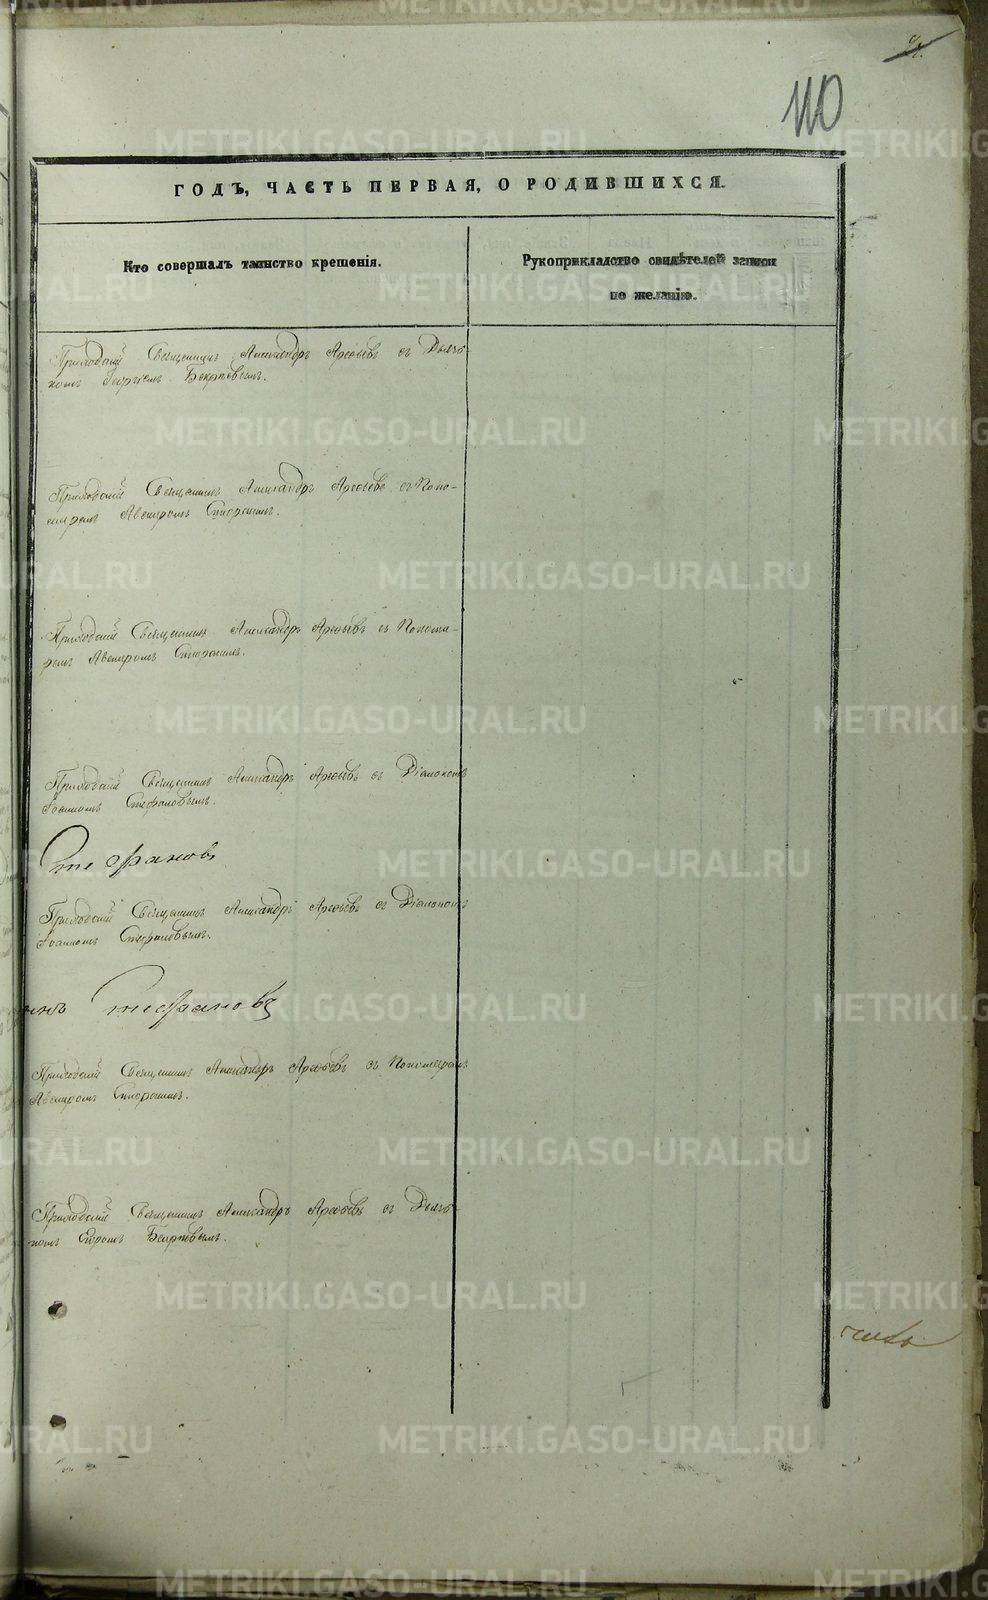 110
ГОДЪ, ЧАСТЬ ПЕРВАЯ, О РОДИВШИХСЯ.
Кто совершалъ таинство крещенія.
Рукоприкладство свидѣтелей записи
по желанію.
Приходскій Священникъ Александръ Арефьевъ съ Дьячь-
комъ Георгіемъ
Приходскій Священникъ Александръ Арефьевъ съ Поно-
маремъ Авениромъ
Приходскій Священникъ Александръ Арефьевъ съ Понома-
ремъ Авениромъ
Приходскій Священникъ Александръ Арефьевъ съ Діакономъ
Іоанномъ Стефановымъ.
Стефановъ
Приходскій Священникъ Александръ Арефьевъ съ Діакономъ
Іоанномъ Стефановымъ.
Стефановъ
Приходскій Священникъ Александръ Арефьевъ съ Пономаремъ
Авениромъ
Приходскій Священникъ Александръ Арефьевъ съ Дьячь-
комъ
METRIKI.GASO-URAL.RU